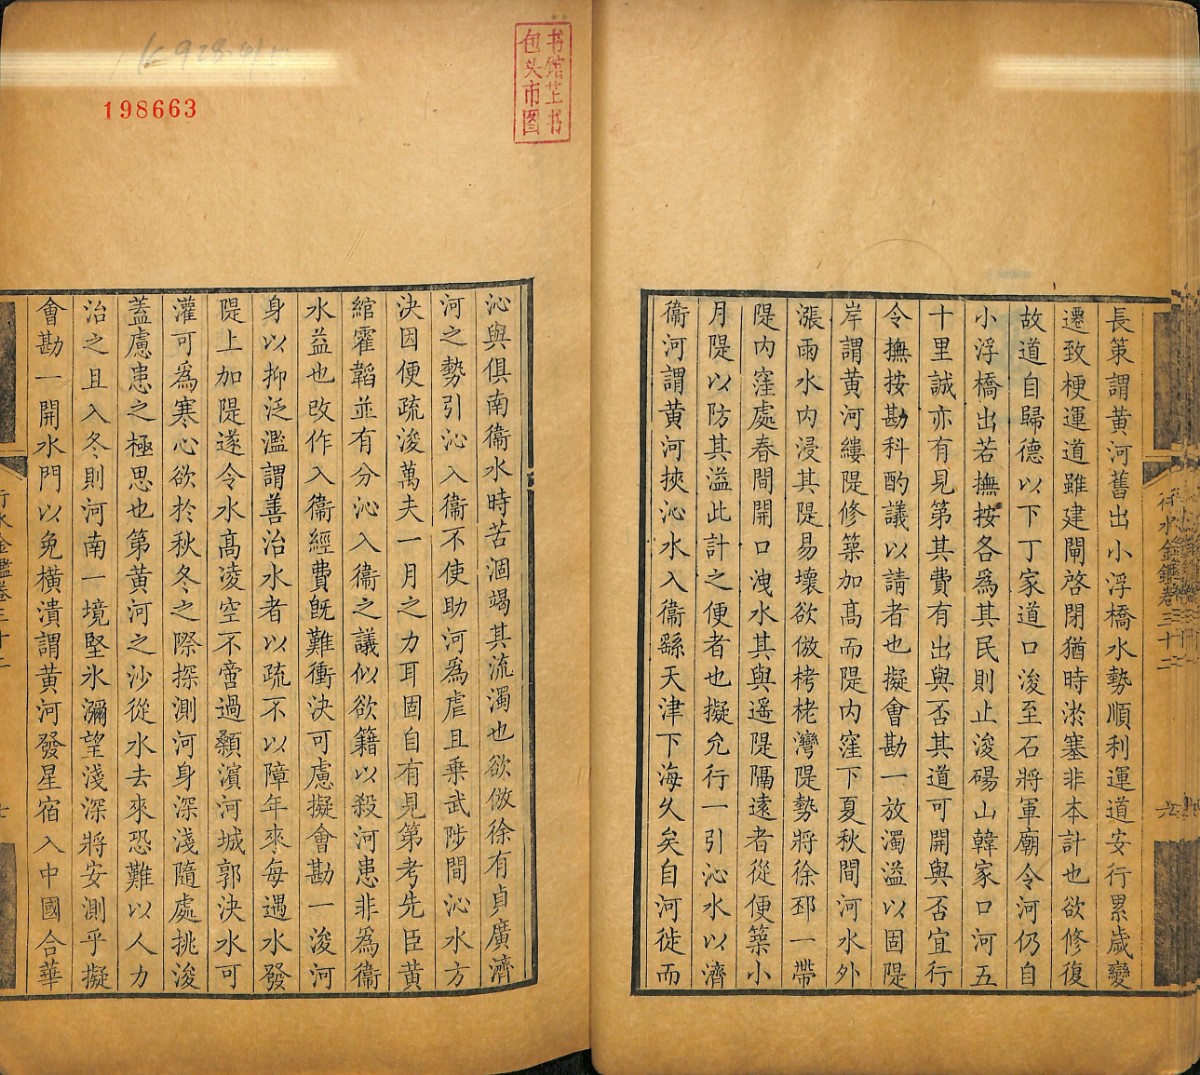 長策謂黄河舊出小浮橋水勢順利運道安行累歲變
遷致梗運道雖建閘啓閉猶時淤塞非本計也欲修復
故道自歸德以下丁家道口浚至石將軍廟令河仍自
小浮橋出若撫按各為其民則止浚碭山韓家口河五
十里誠亦有見第其費有出與否其道可開與否宜行
令撫按勘科酌議以請者也擬會勘一放濁溢以固隄
岸謂黄河縷隄修築加高而隄内窪下夏秋間河水外
漲雨水内浸其隄易壞欲倣栲栳灣隄勢將徐邳一帶
隄内窪處春間開口洩水其與遥隄隔遠者從便築小
月隄以防其溢此計之便者也擬允行一引沁水以濟
衞河謂黄河挾沁水入衞繇天津下海久矣自河徙而
行水金鑑卷三十二
沁與俱南衞水時苦涸竭其流濁也欲倣徐有貞廣濟
河之勢引沁入衞不使助河為虐且乗武陟間沁水方
決因便疏浚萬夫一月之力耳固自有見第考先臣黄
綰霍韜並有分沁入衞之議似欲籍以殺河患非為衞
水益也改作入衞經費旣難衝決可慮擬會勘一浚河
身以抑泛濫謂善治水者以疏不以障年來每遇水發
隄上加隄遂令水高凌空不啻過顙濵河城郭決水可
灌可為寒心欲於秋冬之際探測河身深淺隨處挑浚
蓋慮患之極思也第黄河之沙從水去來恐難以人力
治之且入冬則河南一境堅氷瀰望淺深將安測乎擬
會勘一開水門以免横潰謂黄河發星宿入中國合華
行水金鑑卷三十二
书馆芷书
包头市图
198663